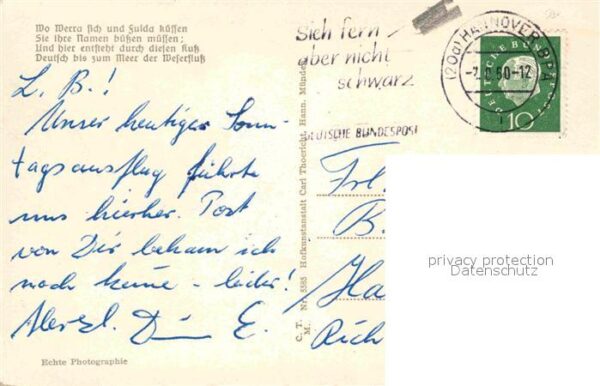 Wo Werra sich und Fulda küssen
Sie ihre Namen büßen müssen;
Und hier entsteht durch diesen Kuß
Deutsch bis zum Meer der Weserfluß
L. B.!
Unser heutiger Sonn-
tagsausflug führte
uns hierher. Post
von Dir bekam ich
noch keine – leider!
Herzl. E.
Echte Photographie
C. T. Nr. 5385 Hofkunstanstalt Carl Thoericht, Hann. Münden
M.
Sieh fern
aber nicht
schwarz
DEUTSCHE BUNDESPOST
(20a) HANNOVER BPA
60-17
DEUTSCHE BUNDESPOST
10
Frl.
B.
Ha
Rich
privacy protection
Datenschutz